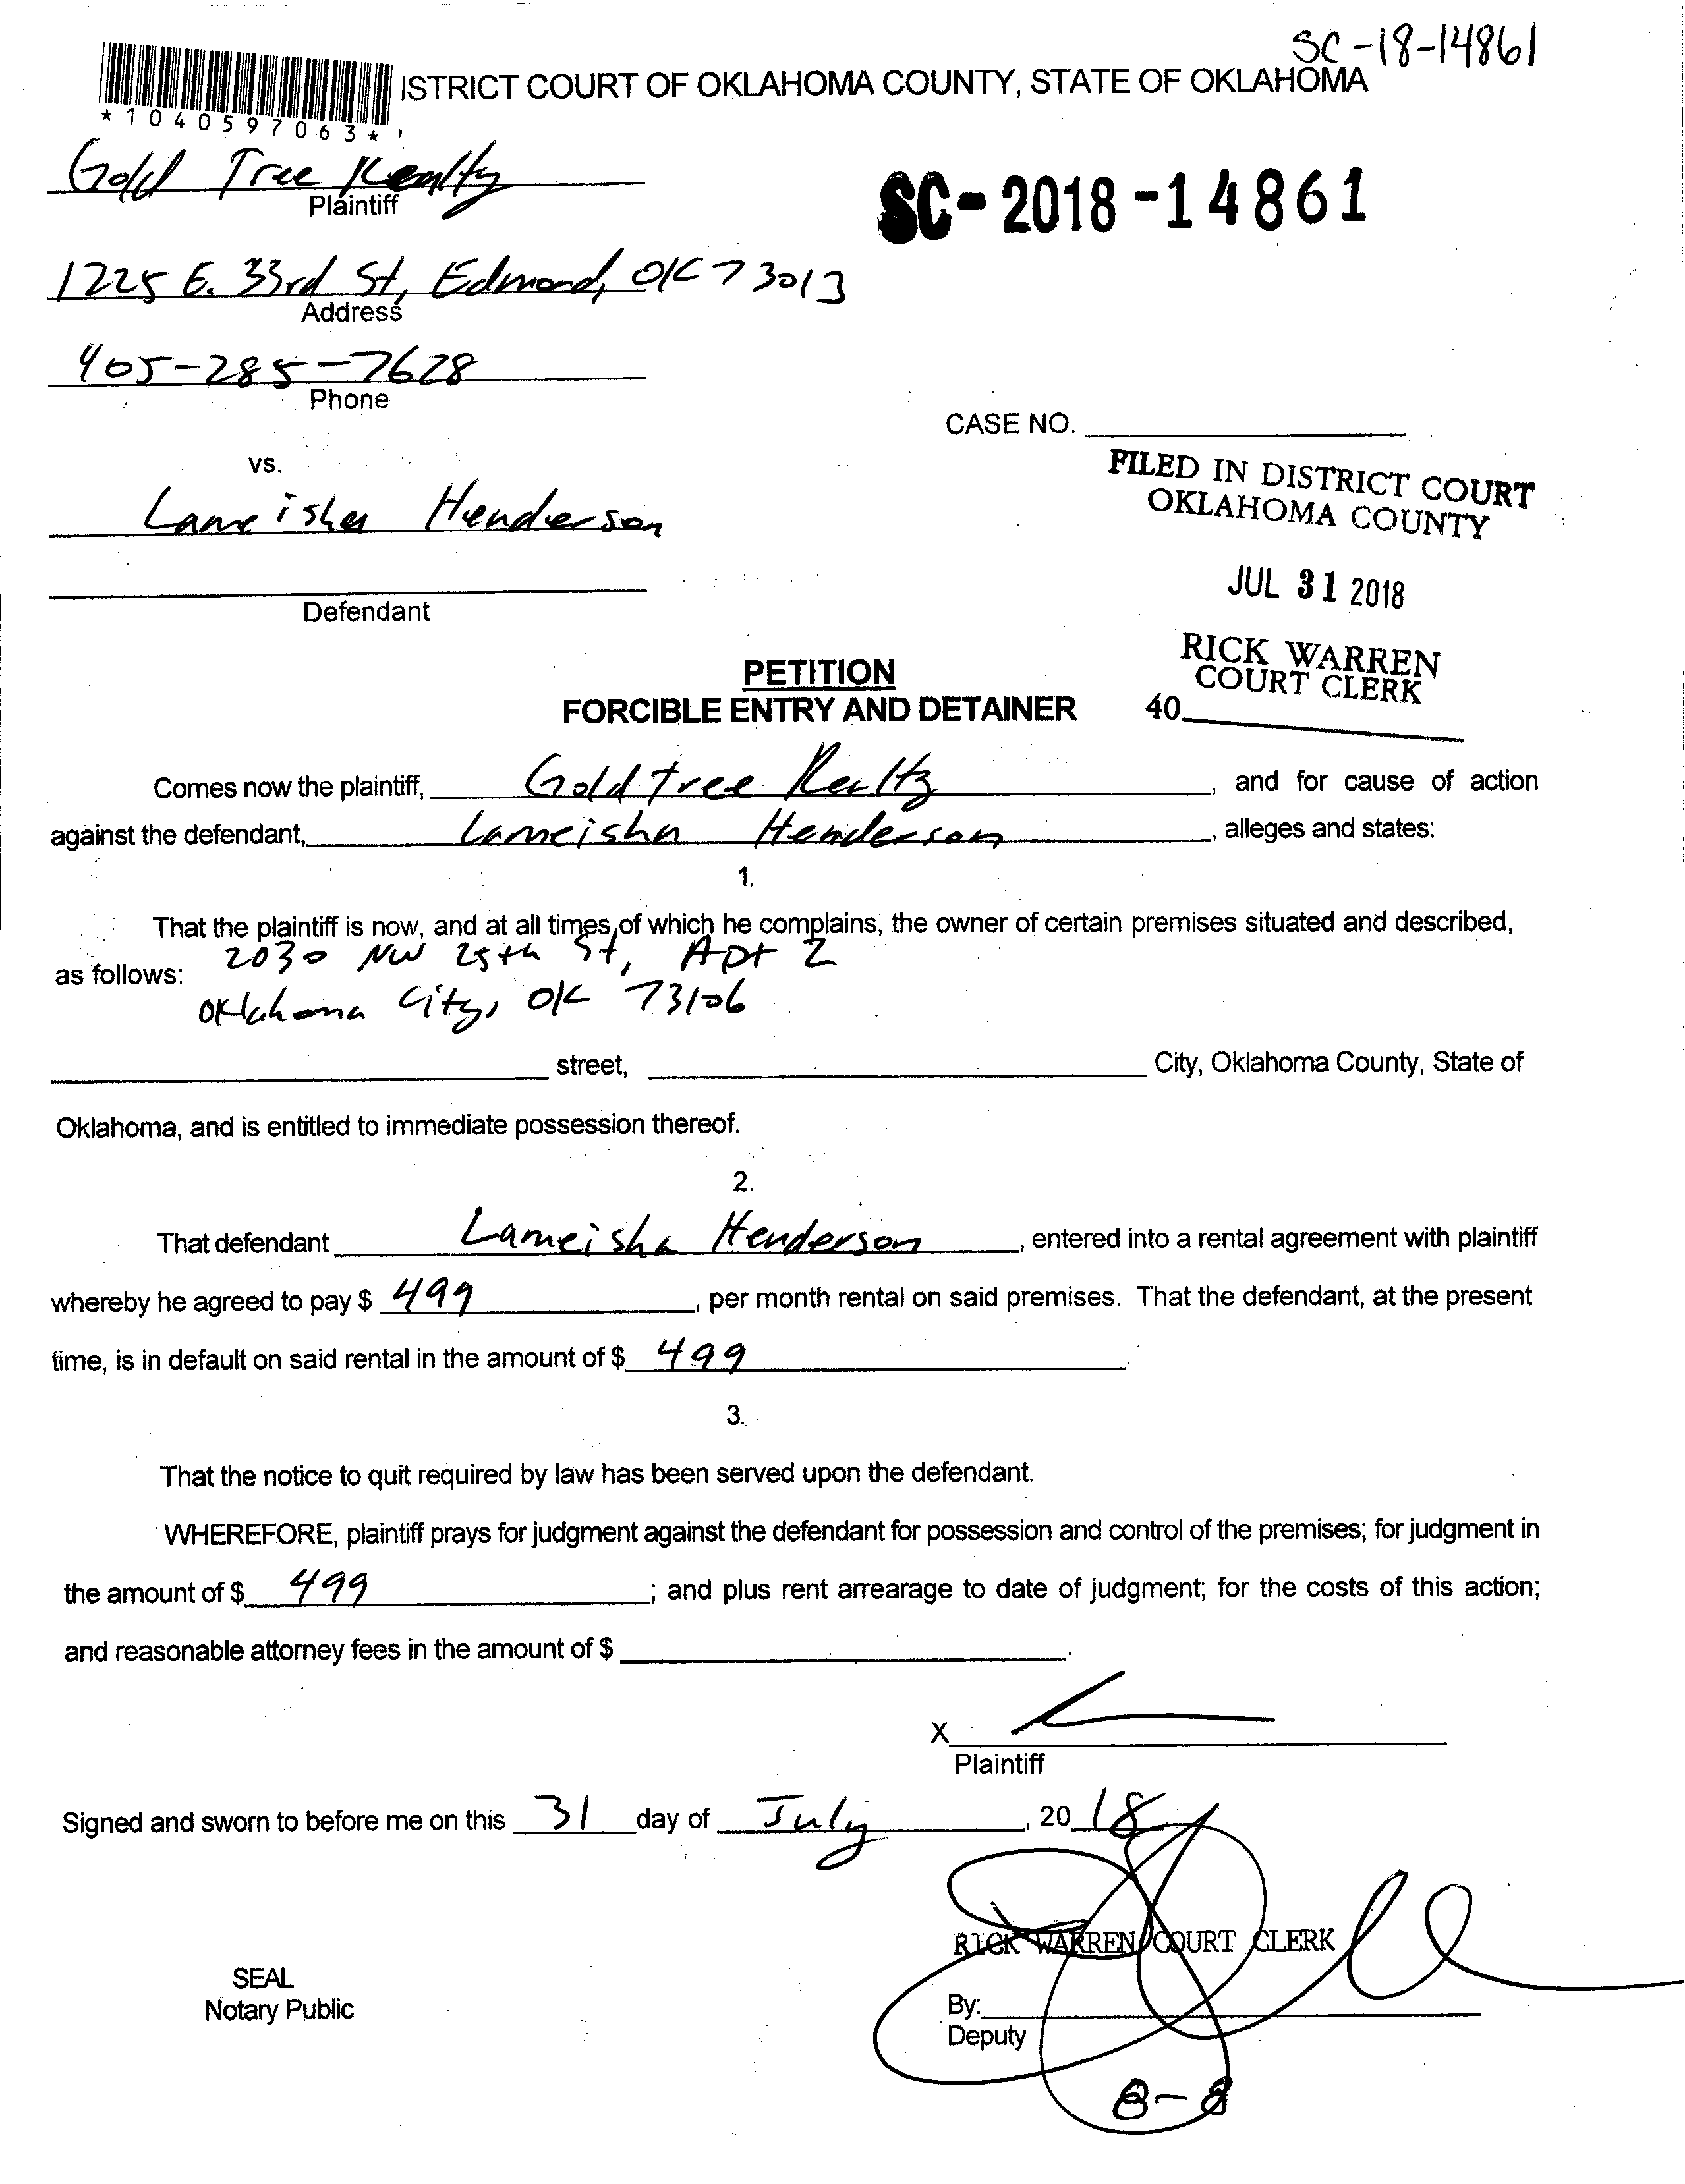 SC-18-14861
ISTRICT COURT OF OKLAHOMA COUNTY, STATE OF OKLAHOMA
*1040597063*
Gold Tree Realty
Plaintiff
SC-2018-14861
1225 E. 33rd St, Edmond, OK 73013
Address
405-285-7628
Phone
CASE NO.
vs.
FILED IN DISTRICT COURT
OKLAHOMA COUNTY
Lameisha Henderson
JUL 31 2018
Defendant
RICK WARREN
COURT CLERK
40
PETITION
FORCIBLE ENTRY AND DETAINER
Comes now the plaintiff, Gold tree Realty, and for cause of action
against the defendant, Lameisha Henderson, alleges and states:
1.
That the plaintiff is now, and at all times of which he complains, the owner of certain premises situated and described,
as follows: 2030 NW 25th St, Apt 2
Oklahoma City, OK 73106
street, City, Oklahoma County, State of
Oklahoma, and is entitled to immediate possession thereof.
2.
That defendant Lameisha Henderson, entered into a rental agreement with plaintiff
whereby he agreed to pay $ 499, per month rental on said premises. That the defendant, at the present
time, is in default on said rental in the amount of $ 499.
3.
That the notice to quit required by law has been served upon the defendant.
WHEREFORE, plaintiff prays for judgment against the defendant for possession and control of the premises; for judgment in
the amount of $ 499; and plus rent arrearage to date of judgment; for the costs of this action;
and reasonable attorney fees in the amount of $ .
X
Plaintiff
Signed and sworn to before me on this 31 day of July, 20 18
RICK WARREN COURT CLERK
SEAL
Notary Public
By:
Deputy
8-8